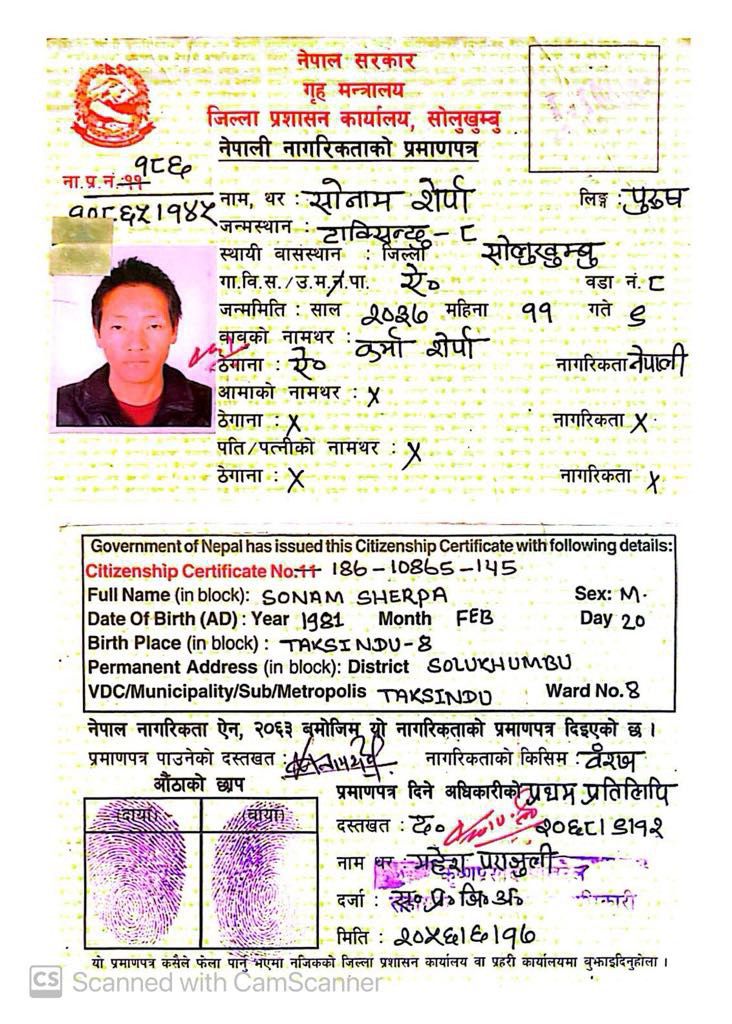 नेपाल सरकार
गृह मन्त्रालय
जिल्ला प्रशासन कार्यालय, सोलुखुम्बु
नेपाली नागरिकताको प्रमाणपत्र
ना.प्र.नं. ११ १८६
१०८६५/१४५
नाम, थर : सोनाम शेर्पा लिङ्ग : पुरुष
जन्मस्थान : टाक्सिन्दु - ८
स्थायी वासंस्थान : जिल्ला सोलुखुम्बु
गा.वि.स./उ.म.न.पा. ऐ० वडा नं. ८
जन्ममिति : साल २०३७ महिना ११ गते ९
बाबुको नामथर : कर्मा शेर्पा
ठेगाना : ऐ० नागरिकता नेपाली
आमाको नामथर : x
ठेगाना : x नागरिकता x
पति/पत्नीको नामथर : x
ठेगाना : x नागरिकता x
Government of Nepal has issued this Citizenship Certificate with following details:
Citizenship Certificate No. 11 186-10865-145
Full Name (in block): SONAM SHERPA Sex: M.
Date Of Birth (AD) : Year 1981 Month FEB Day 20
Birth Place (in block) : TAKSINDU-8
Permanent Address (in block): District SOLUKHUMBU
VDC/Municipality/Sub/Metropolis TAKSINDU Ward No. 8
नेपाल नागरिकता ऐन, २०६३ बमोजिम यो नागरिकताको प्रमाणपत्र दिइएको छ ।
प्रमाणपत्र पाउनेको दस्तखत : नागरिकताको किसिम : वंशज
औंठाको छाप
(दायाँ) (बायाँ)
प्रमाणपत्र दिने अधिकारीको प्रथम प्रतिलिपि
दस्तखत : द० २०६८/९/१२
नाम थर
दर्जा : प्र० जि० अ०
मिति : २०५६/६/१७
यो प्रमाणपत्र कसैले फेला पार्नु भएमा नजिकको जिल्ला प्रशासन कार्यालय वा प्रहरी कार्यालयमा बुझाइदिनुहोला ।
CS Scanned with CamScanner